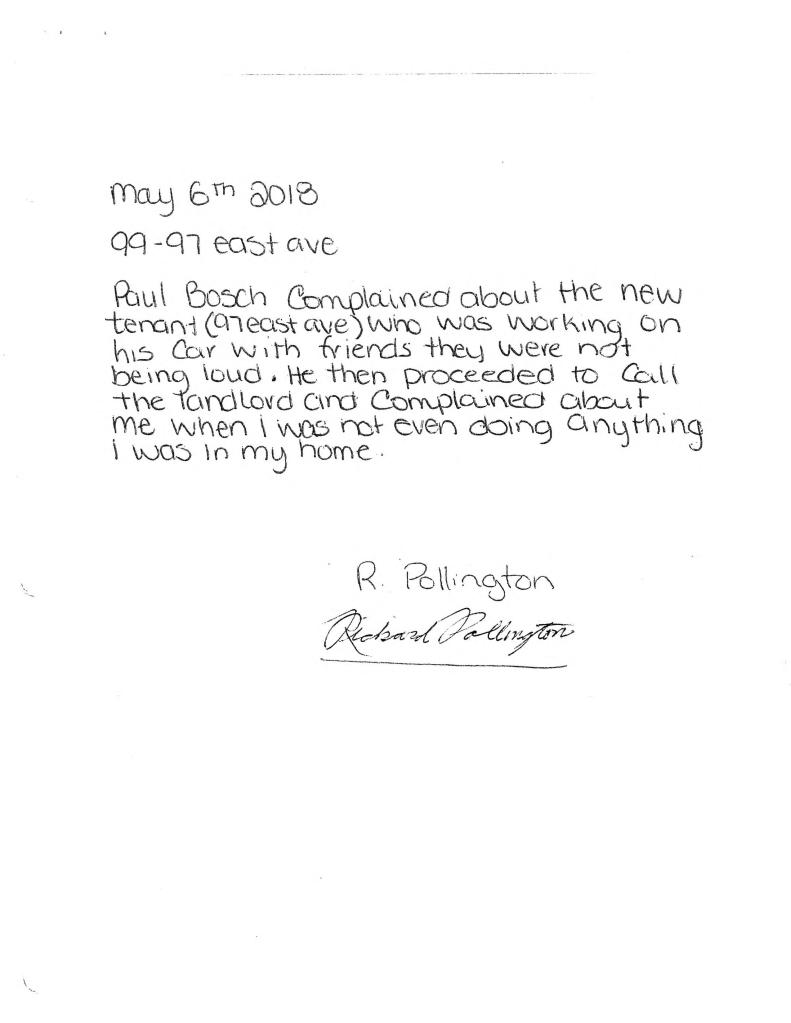 May 6th 2018
99-97 east ave
Paul Bosch Complained about the new
tenant (97 east ave) who was working on
his Car with friends they were not
being loud. He then proceeded to Call
the landlord and Complained about
me when i was not even doing anything
i was in my home.
R. Pollington
Richard Pollington